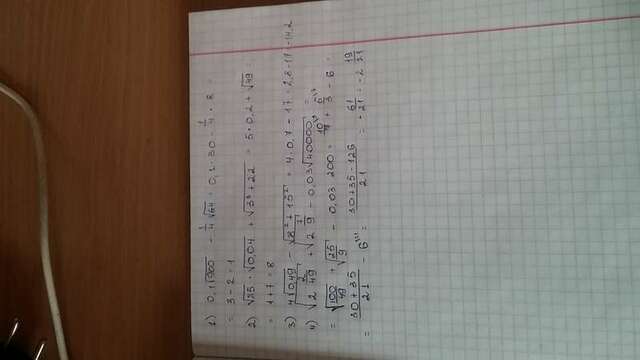 1) 0,1√900 - 1/4 √64 = 0,1·30 - 1/4 · 8 =
= 3 - 2 = 1
2) √25 · √0,04 + √(3³ + 22) = 5·0,2 + √49 =
= 1 + 7 = 8
3) 4√0,49 - √(8² + 15²) = 4·0,7 - 17 = 2,8 - 17 = -14,2
4) √(2 2/49) + √(2 7/9) - 0,03√40000 =
= √(100/49) + √(25/9) - 0,03·200 = 10/7 + 5/3 - 6 =
= (30+35)/21 - 6 = (30+35-126)/21 = -61/21 = -2 19/21